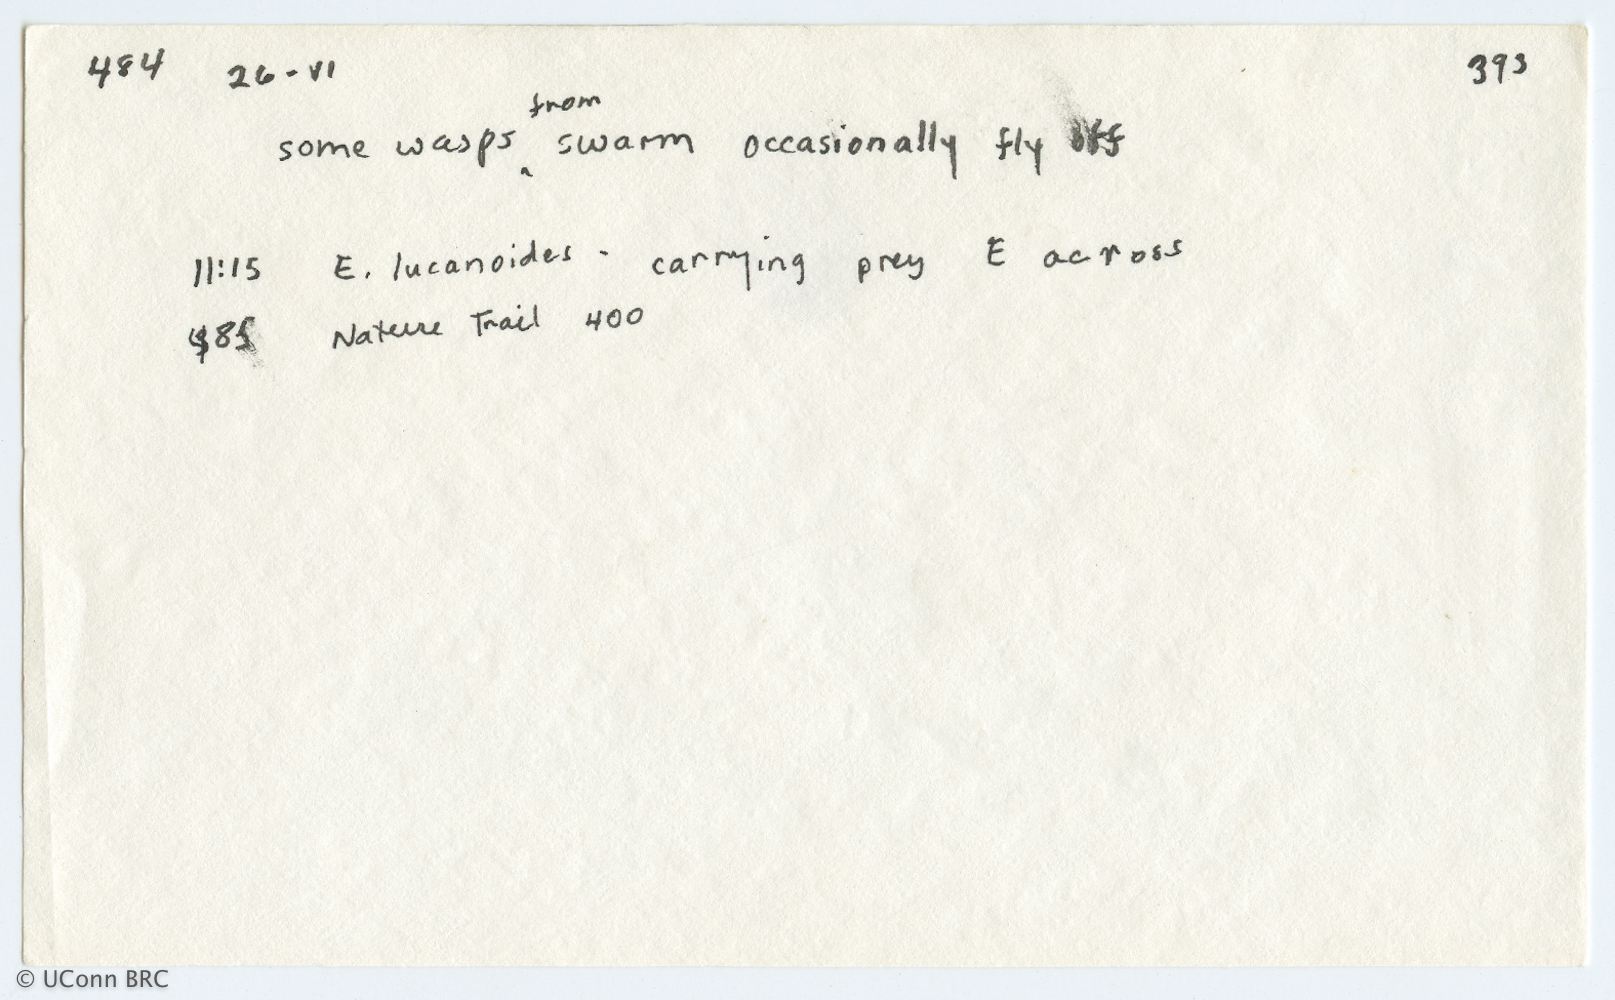 484 26-VI 393
some wasps from swarm occasionally fly off
11:15 E. lucanoides - carrying prey E across
485 Nature Trail 400
© UConn BRC